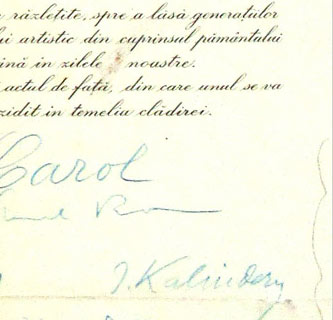 răzlețite, spre a lăsă generațiilor
artistic din cuprinsul pământului
până în zilele noastre.
actul de față, din care unul se va
zidit in temelia clădirei.
Carol
I. Kalindery